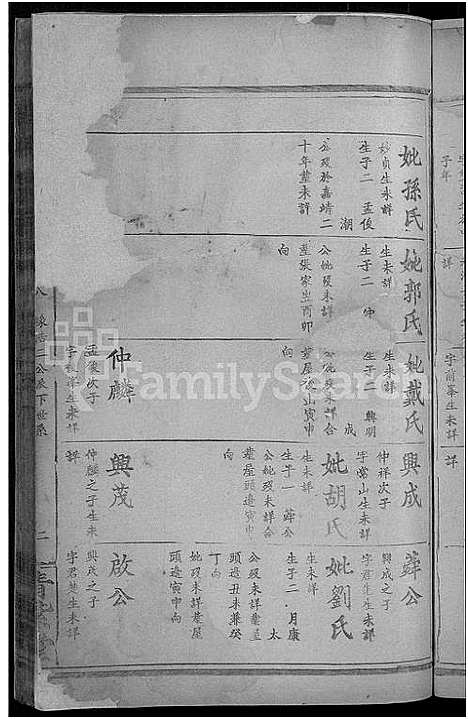 妣孫氏
妙貞生未詳
生子二 孟俊
潮
公歿於嘉靖二
十年葬未詳
妣郭氏
生未詳
生子二 
公妣歿未詳
葬張家生酉卯
向
妣戴氏
生未詳
生子 興明
成
公妣歿未詳合
葬屋後山寅申
向
仲麟
孟俊次子
字 祥生未詳
興成
仲祥次子
字常山生未詳
妣胡氏
生未詳
生子一 薛公
公妣歿未詳合
葬屋頭邊寅申
向
興茂
仲麟之子生未
詳
薛公
興成之子
字君 生未詳
妣劉氏
生未詳
生子二 月康
太
公歿未詳葬屋
頭邊丑未兼癸
丁向
妣歿未詳葬屋
頭邊寅申向
啟公
興茂之子
字君楚生未詳
公派下世系
二
FamilySearch